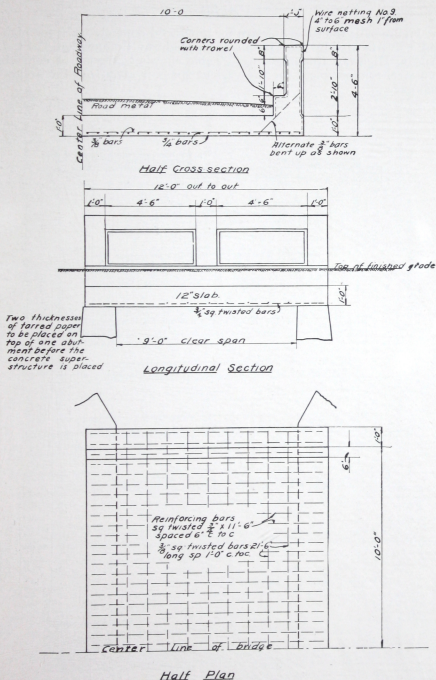 10'-0
1'-1"
Wire netting No.9
4" to 6" mesh 1" from
surface
Corners rounded
with trowel
8"
8"
1'-10"
2'-10"
4'-6"
6"
6"
Road metal
1'-0"
1'-0"
Center Line of Roadway
3/8" bars
3/4" bars
Alternate 3/4" bars
bent up as shown
Half Cross section
12'-0" out to out
1'-0"
4'-6"
1'-0"
4'-6"
1'-0"
Top of finished grade
12" slab.
1'-0"
3/4" sq twisted bars
Two thicknesses
of tarred paper
to be placed on
top of one abut-
ment before the
concrete super-
structure is placed
9'-0" clear span
Longitudinal Section
1'-0"
6"
Reinforcing bars
sq twisted 3/4" x 11'-6"
spaced 6" c to c
3/8" sq twisted bars 21'-6"
long sp 1'-0" c. to c.
10'-0"
Center Line of bridge
Half Plan